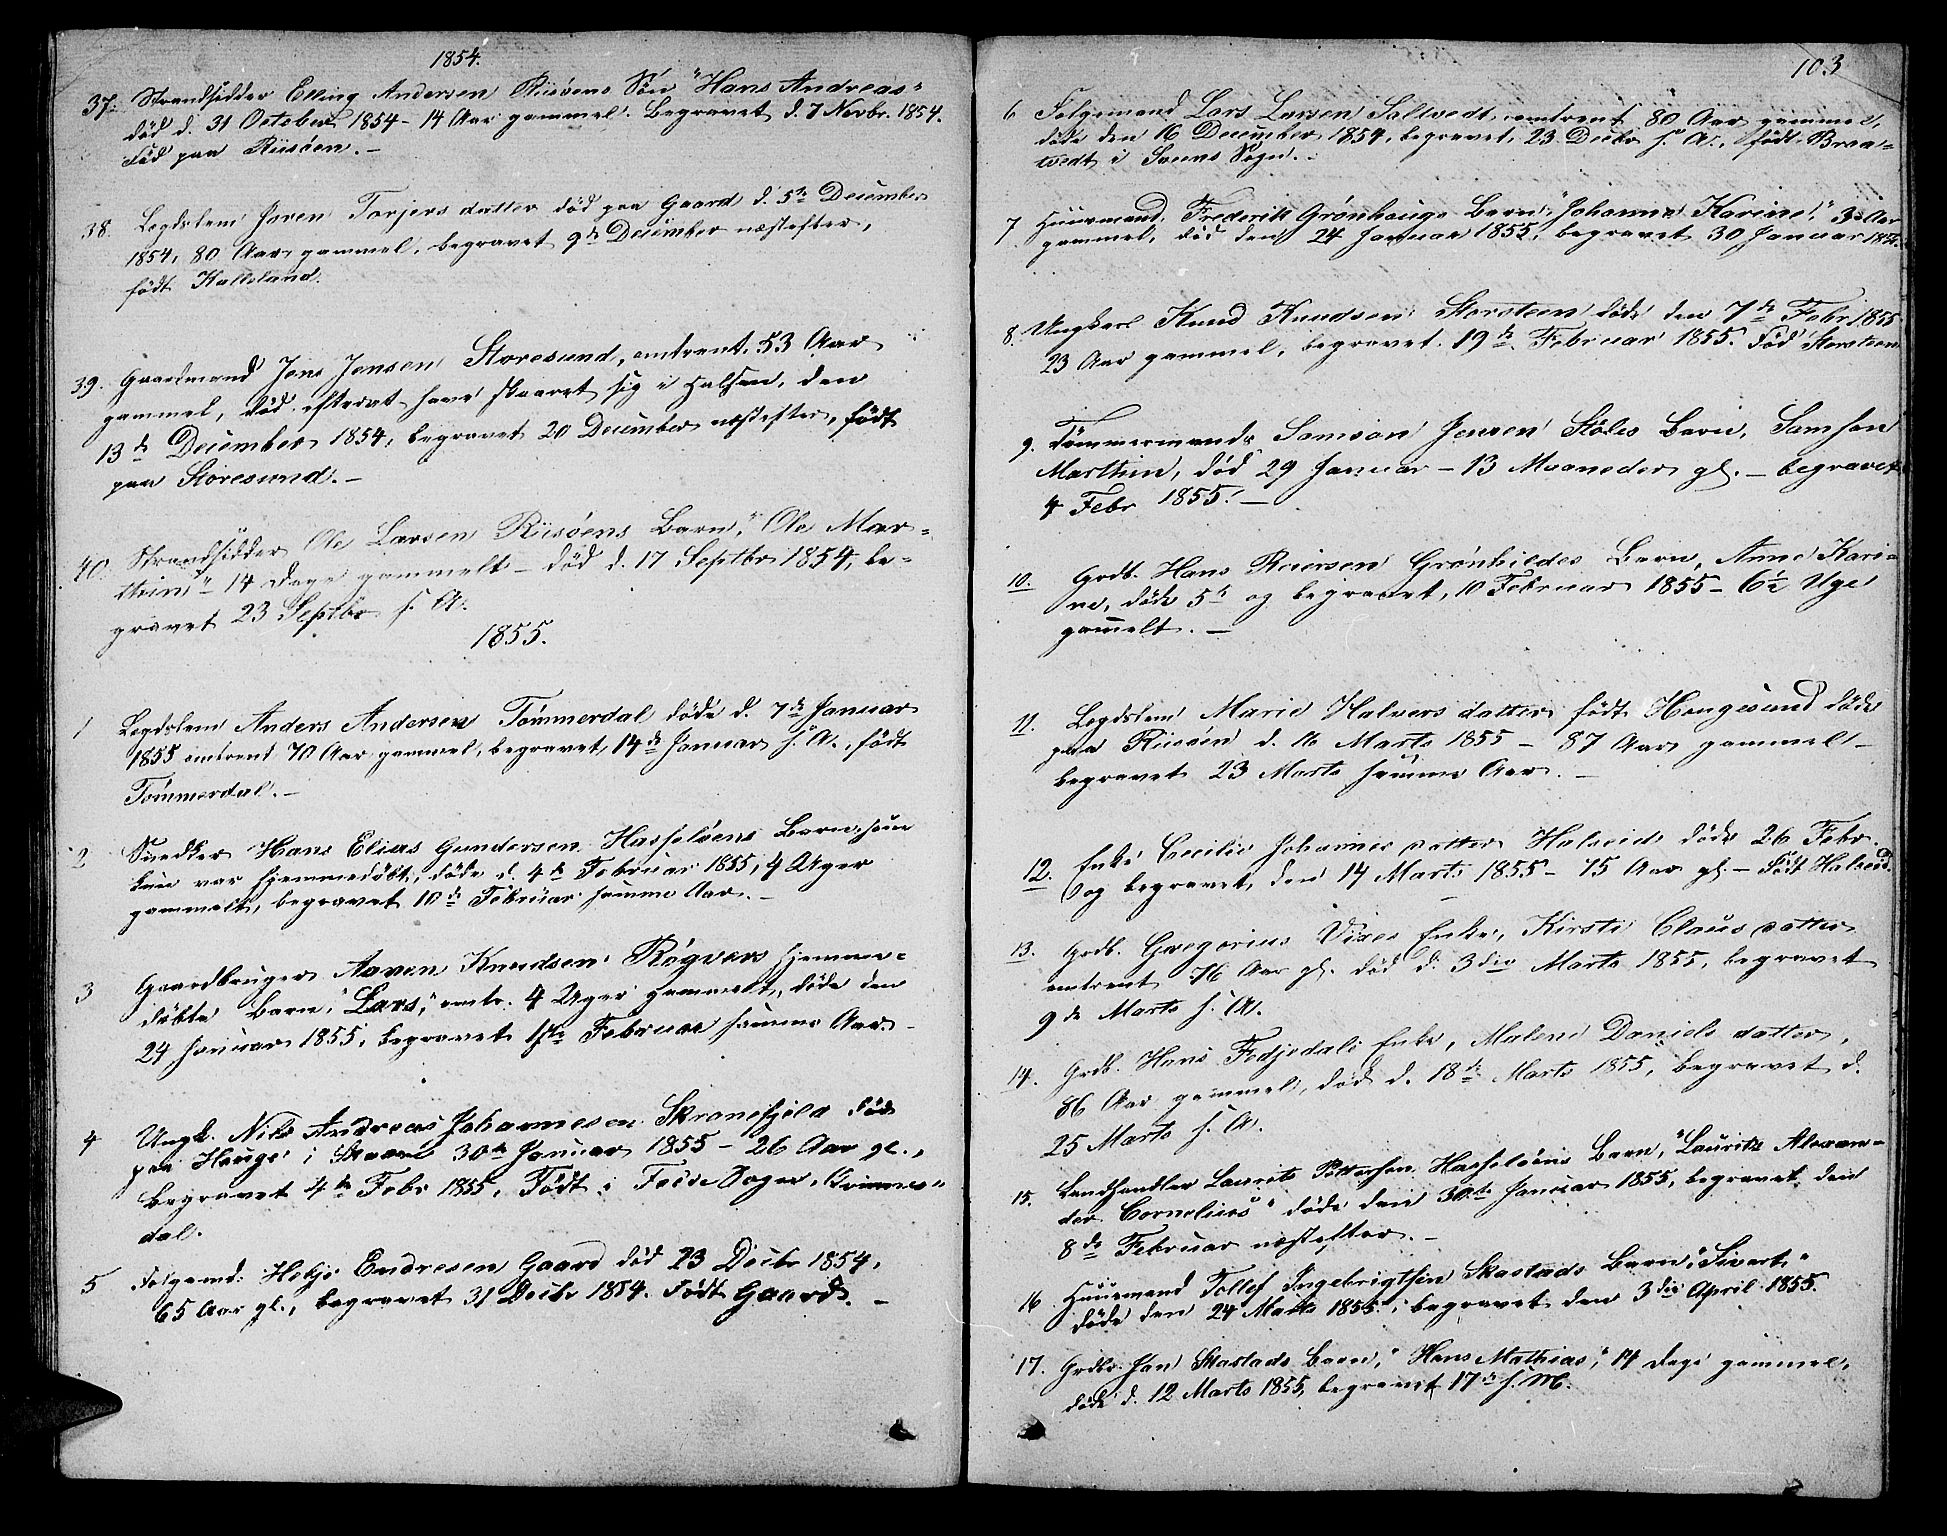 1854.
37. Strandsidder Elling Andersen Riisøens Søn "Hans Andreas"
død d. 31 October 1854 - 14 Aar gammel. Begravet d. 7 Novbr. 1854.
Fød paa Riisøen. -
38. Legdslem Joren Torjersdatter død paa Gaard d. 5te December
1854, 80 Aar gammel, begravet 9de December næstefter,
født Kalleland.
39. Gaardmand Jens Jensen Storesund, omtrent 53 Aar
gammel, død efterat have skaaret sig i Halsen, den
13de December 1854, begravet 20 December næstefter, født
paa Storesund. -
40. Strandsidder Ole Larsen Riisøens Barn, "Ole Mar-
thin" - 14 Dage gammelt - død d. 17 Septbr 1854, be-
gravet 23 Septbr s. A.
1855.
1 Legdslem Anders Andersen Tømmerdal døde d. 7de Januar
1855 omtrent 70 Aar gammel, begravet, 14de Januar s. A., født
Tømmerdal. -
2 Snedker Hans Elias Gundersen Hasseløens Barn, som
kun var hjemmedøbt, døde d. 4de Februar 1855, 4 Uger
gammelt, begravet 10de Februar samme Aar. -
3 Gaardbruger Aamen Knudsen Røgvær hjemme-
døbte Barn, "Lars," omtr. 4 Uger gammelt, døde den
24 Januar 1855, begravet 1ste Februar samme Aar -
4 Ungk. Nils Andreas Johannesen Skranefjeld død
paa Hauge i Skaare 30te Januar 1855 - 26 Aar gl.,
begravet 4de Febr 1855, Født i Foss Sogn,
dal.
5 Folgemd: Helje Endresen Gaard død 23 Decbr 1854,
65 Aar gl., begravet 31 Decbr 1854. Født Gaard. -
103
6 Folgemand Lars Larsen Saltvedt, omtrent 80 Aar gammel,
døde den 16 December 1854, begravet, 23 Decbr s. A., født Braa-
tvedt i Sveens Sogn. -
7 Huusmand, Frederik Grønhaugs Barn, "Johanne Karine," 3 Aar
gammel, død den 24 Januar 1855, begravet 30 Januar 1855.
8. Ungkarl Knud Knudsen Storsteen døde den 7de Febr 1855
23 Aar gammel, begravet 19de Februar 1855. Fød Storsteen
9. Tømmermands Samson Jensen Støles Barn, Samson
Marthin, død 29 Januar - 13 Maaneder gl. - begravet
4 Febr 1855. -
10. Grdb. Hans Reiersen Grønhildes Barn, Anne Kari-
ne, døde 5te og begravet, 10 Februar 1855 - 6½ Uge
gamelt. -
11. Legdslem Marie Halversdatter født Haugesund døde
paa Riisøen d. 16 Marts 1855 - 87 Aar gammel -
begravet 23 Marts samme Aar. -
12. Enke Cecilie Johannesdatter Halseid døde 26 Febr
og begravet, den 14 Marts 1855 - 75 Aar gl. - Født Halseid.
13. Grdb. Gregorius Vixes Enke, Kirsti Clausdatter
omtrent 76 Aar gl. død d. 3die Marts 1855, begravet
9de Marts s. A.
14. Grdb. Hans Fedjedals Enke, Malene Danielsdatter,
86 Aar gammel, død d. 18de Marts 1855, begravet d.
25 Marts s. A.
15. Landhandler Laurits Pettersen Hasseløens Barn, "Lauritz Alexan-
der Cornelius" døde den 30te Januar 1855, begravet, den
8de Februar næstefter. -
16 Huusmand Tollef Ingebrigtsen Skastads Barn, "Sivert"
døde den 24 Marts 1855, begravet den 3die April 1855.
17. Grdbr. Jan Skastads Barn, "Hans Mathias," 14 Dage gammel,
døde d. 12 Marts 1855, begravet 17de s. M.